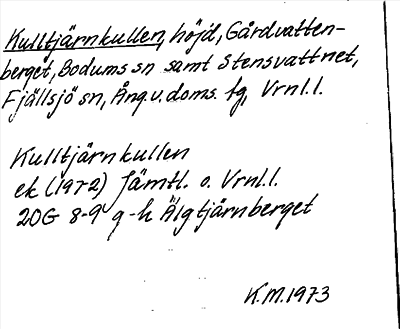 Kulltjärnkullen, höjd, Gårdvatten-
berget, Bodums sn samt Stensvattnet,
Fjällsjö sn, Ång.v.doms. fg, Vrnl.l.
Kulltjärnkullen
ek (1972) Jämtl. o. Vrnl.l.
20G 8-9 g-h Älgtjärnberget
K.M.1973